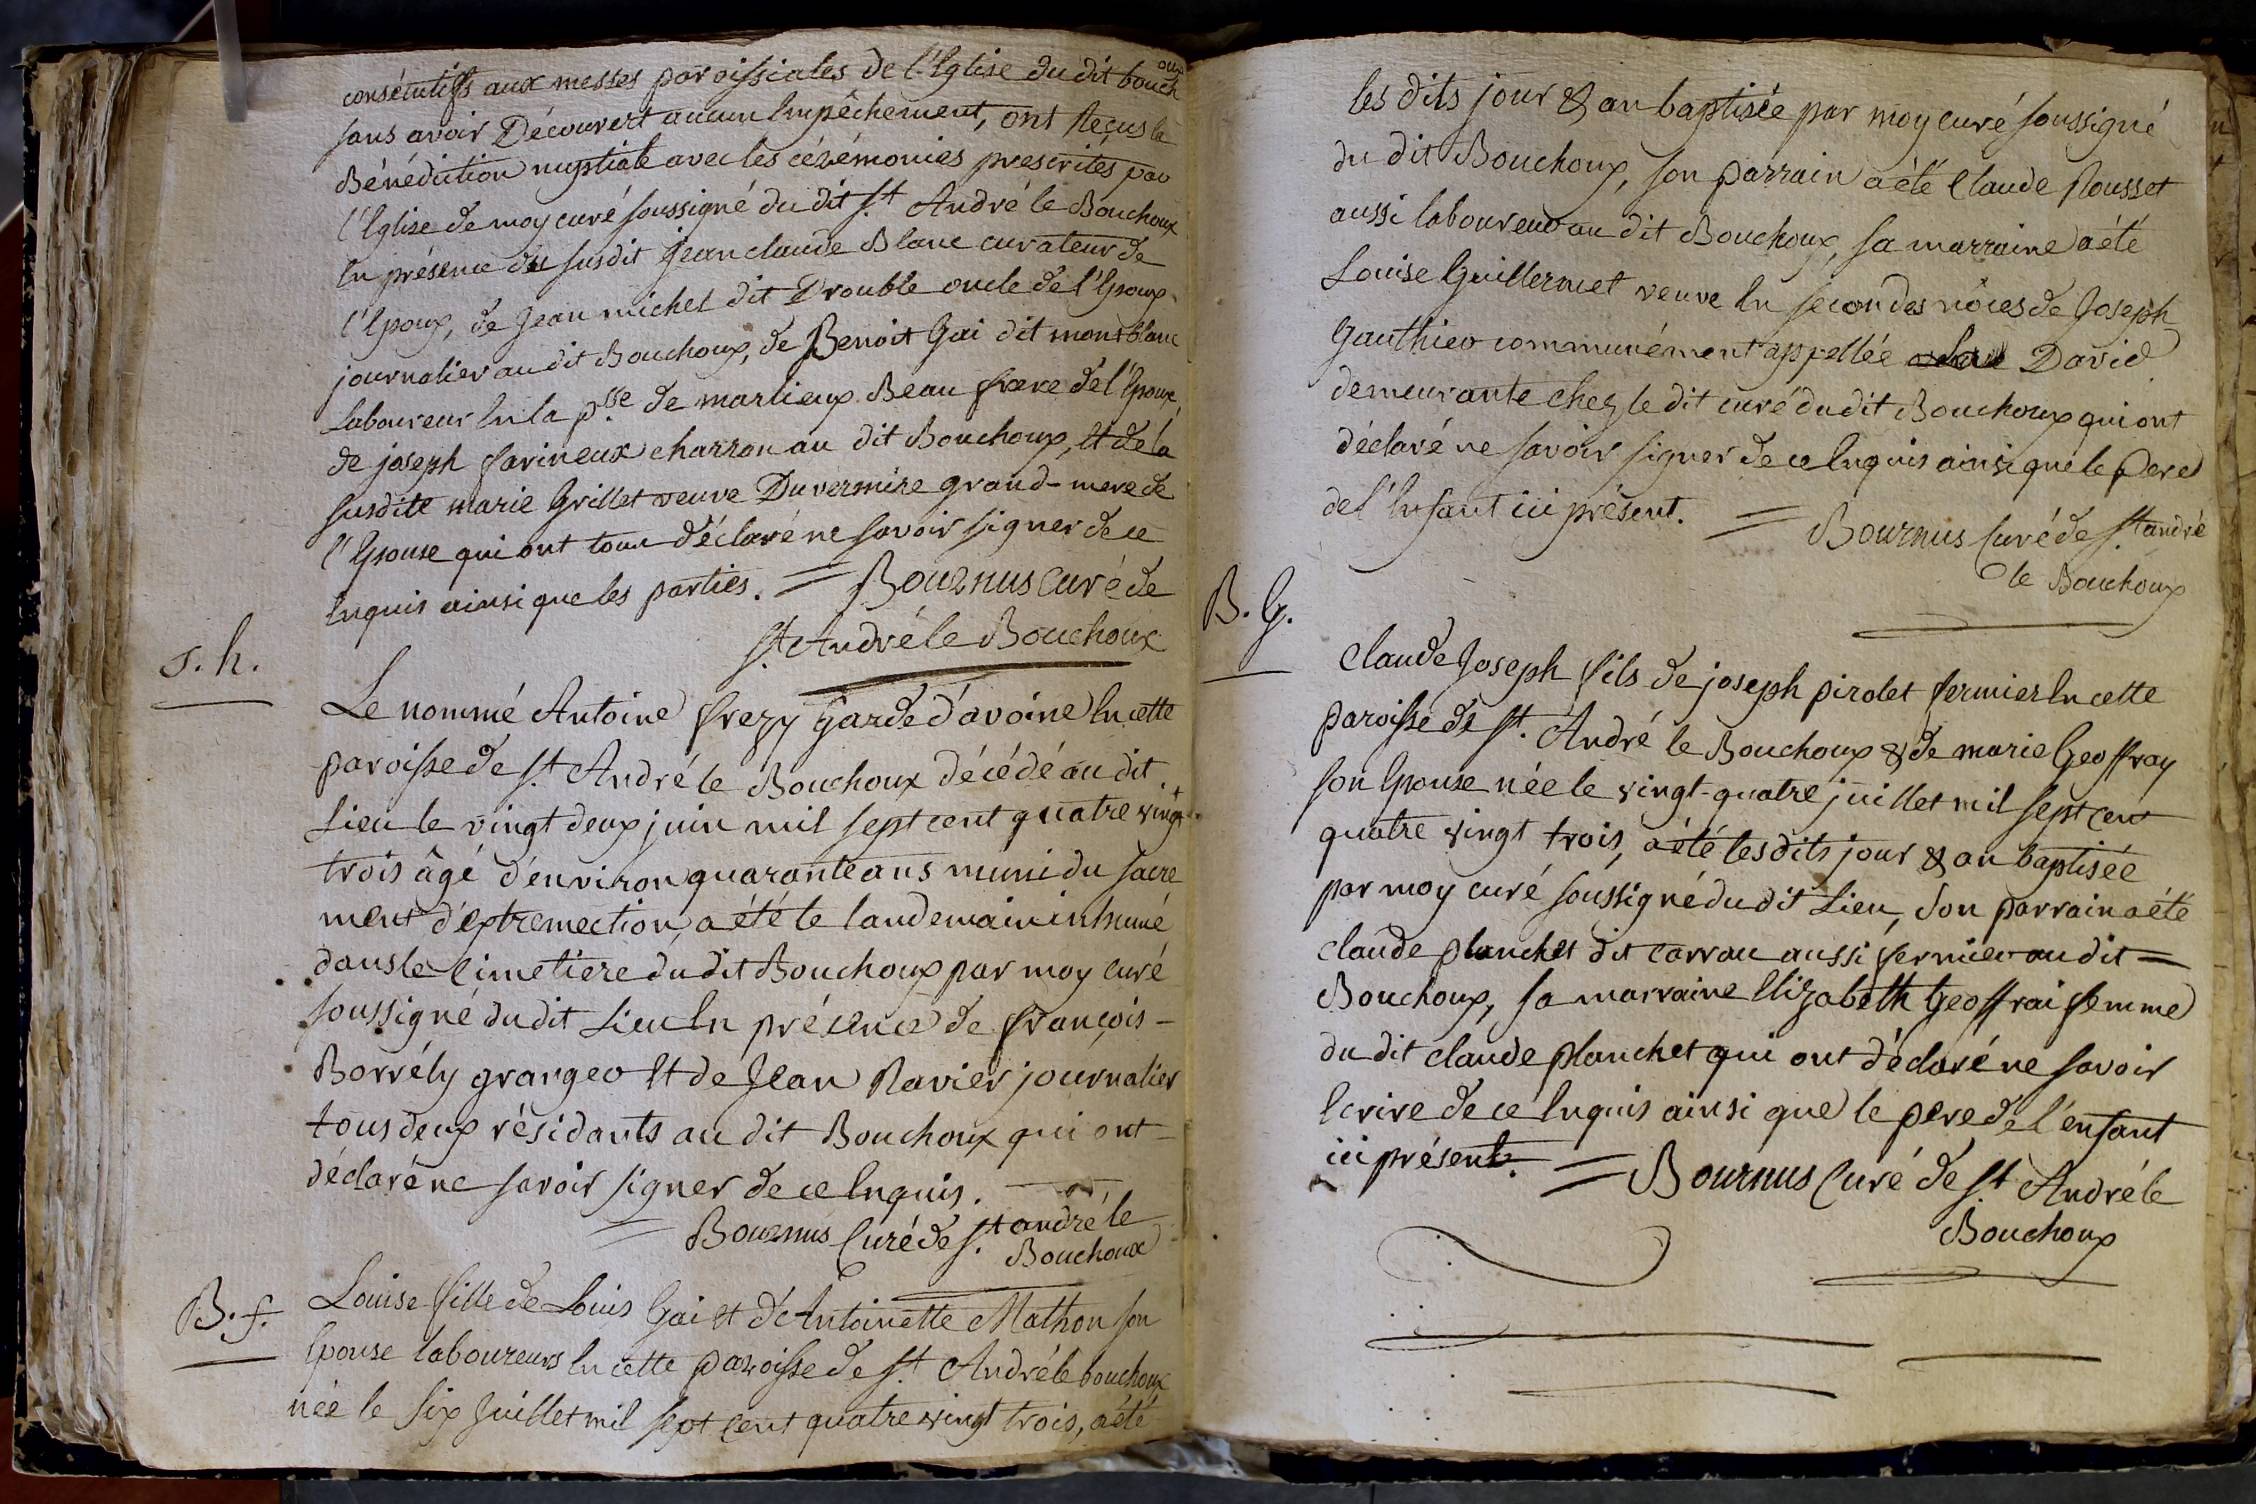 consécutifs aux messes paroissiales de l'Eglise du dit bouchoux
sans avoir Découvert aucun Empêchement, ont Reçus la
Bénédiction nuptiale avec les cérémonies prescrites par
l'Eglise de moy curé soussigné du dit St. André le Bouchoux
En présence du susdit jean claude Blanc curateur de
l'Epoux, de Jean michel dit Drouble oncle de l'Epoux
journalier au dit Bouchoux, de Benoit Gai dit montblanc
Laboureur En la psse de marlieux Beau frere de l'Epoux,
de joseph farineux charron au dit Bouchoux, Et de la
susdite marie Grillet veuve Duvernire grand-mere de
l'Epouse qui ont tous déclaré ne savoir signer de ce
Enquis ainsi que les parties. = Bournus Curé de
St. André le Bouchoux
s. h.
Le nommé Antoine frezy Garde d'avoine En cette
paroisse de St. André le Bouchoux décédé au dit
Lieu le vingt deux juin mil sept cent quatre vingt
trois âgé d'environ quarante ans muni du sacre
ment d'extremection, a été le landemain inhumé
dans le Cimetiere du dit Bouchoux par moy curé
soussigné du dit Lieu En présence de françois -
Borrély granger Et de Jean Ravier journalier
tous deux résidants au dit Bouchoux qui ont -
déclaré ne savoir signer de ce Enquis.
= Bournus Curé de St. andré le
Bouchoux
B. f.
Louise fille de Louis Gai et d'Antoinette Mathon son
Epouse laboureurs En cette paroisse de St. André le bouchoux
née le six Juillet mil sept cent quatre vingt trois, a été
les dits jour & an baptisée par moy curé soussigné
du dit Bouchoux, son parrain a été Claude Rousset
aussi laboureur au dit Bouchoux, sa marraine a été
Louise Guillermet veuve En secondes nôces de Joseph
Gauthier communément appellée David
demeurante chez le dit curé du dit Bouchoux qui ont
déclaré ne savoir signer de ce Enquis ainsi que le Pere
de l'Enfant ici présent. = Bournus Curé de St. andré
le Bouchoux
B. G.
Claude Joseph fils de joseph pirolet fermier En cette
paroisse de St. André le Bouchoux & de marie Geoffray
son Epouse née le vingt-quatre juillet mil sept cent
quatre vingt trois, a été les dits jour & an baptisée
par moy curé soussigné du dit Lieu, son parrain a été
claude planchet dit carrau aussi fermier au dit =
Bouchoux, sa marraine Elizabeth Geoffrai femme
du dit claude planchet qui ont déclaré ne savoir
Ecrire de ce Enquis ainsi que le pere de l'enfant
ici présent. = Bournus Curé de St. André le
Bouchoux